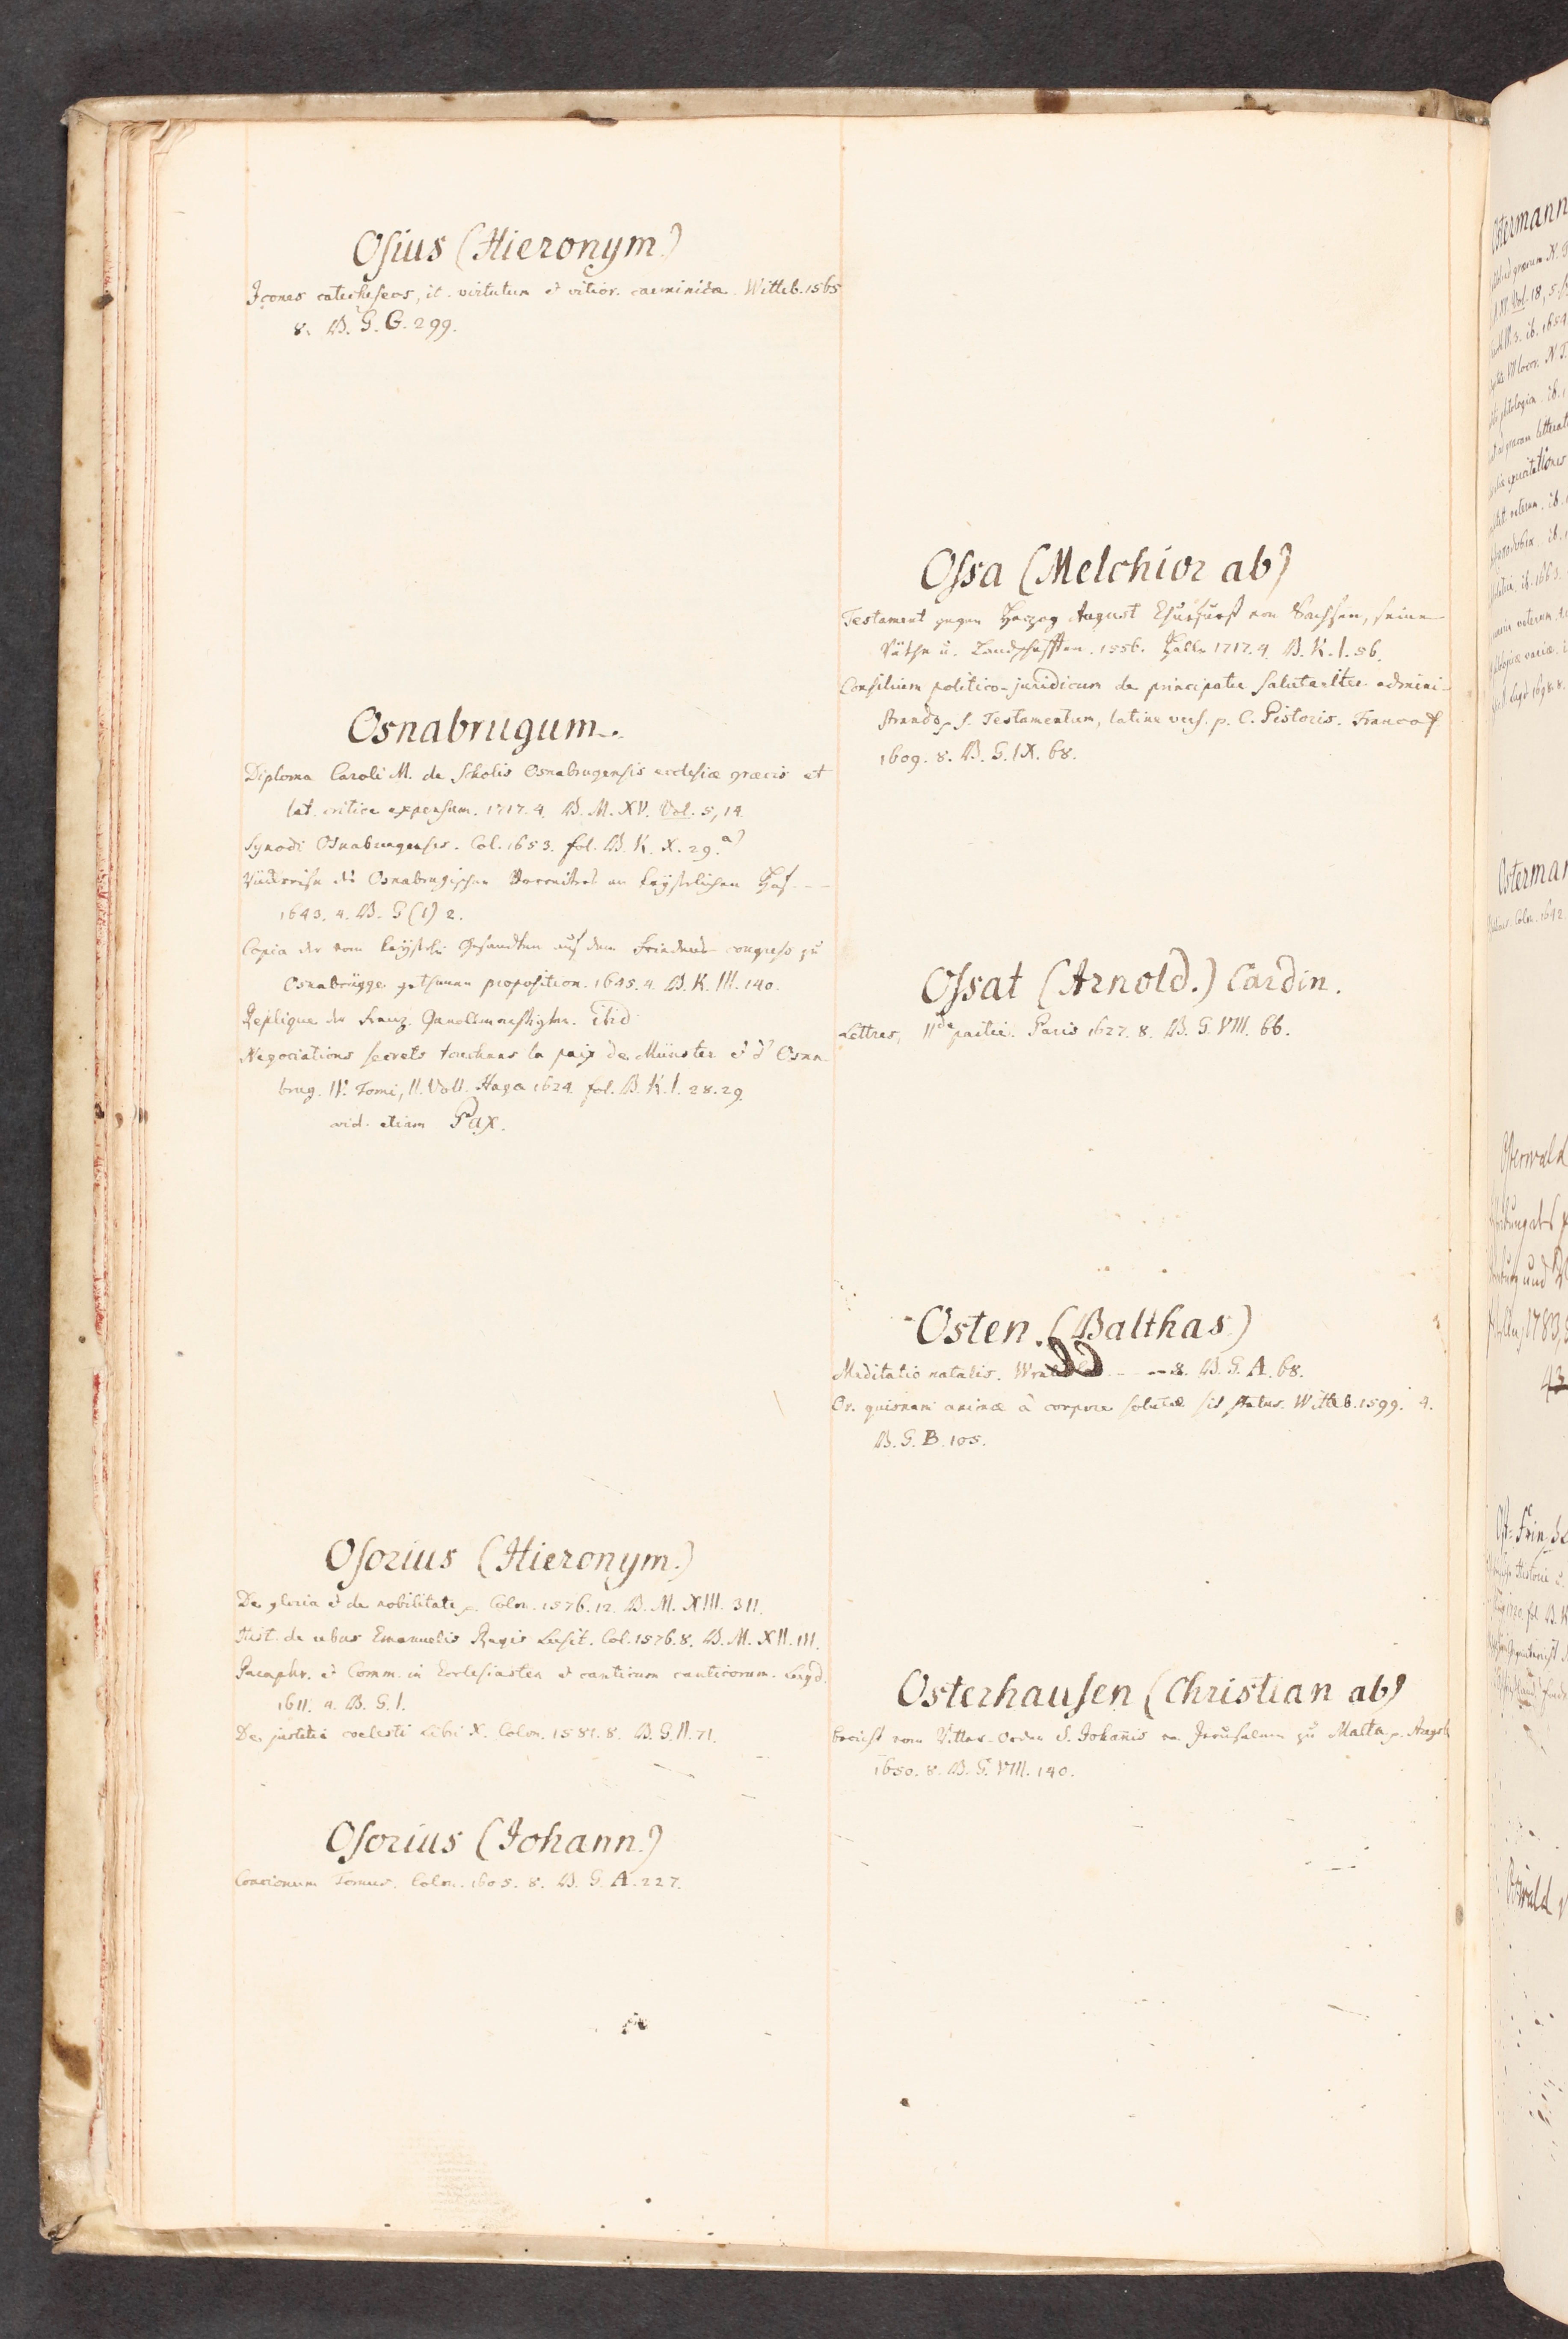 Osius (Hieronym.)
Icones catecheseos, it. virtutum et vitior. carminica. Witteb. 1565
8. B. G. G. 299.
Osnabrugum.
Diploma Caroli M. de scholis Osnabrugensis ecclesiæ græcis et
lat. critice expensum. 1717. 4. B. M. XV. Vol. 5, 14.
Synodi Osnabrugenses. Col. 1653. fol. B. K. X. 29. a)
des Osnabrugischen an Keyserlichen Hof - - -
1643. 4. B. G (1) 2.
Copia der vom Keyserl. Gesandten auf dem Friedens congress zu
Osnabrügge gethanen proposition. 1645. 4. B. K. III. 140.
Replique der Franz. ibid
Negociations secrets touchans la paix de Münster et d' Osna-
brug. IV. Tomi, II. Voll. Haga 1624. fol. B. K. I. 28. 29.
vid. etiam Pax.
Osorius (Hieronym.)
De gloria et de nobilitate p. Colon. 1576. 12. B. M. XIII. 311.
Hist. de rebus Emanuelis Regis Lusit. Col. 1576. 8. B. M. XII. 111.
Paraphr. et Comm. in Ecclesiasten et canticum canticorum. Lugd.
1611. 4. B. G. I.
De justitia coelesti Libri X. Colon. 1581. 8. B. G. II. 71.
Osorius (Johann.)
Concionum Tomus. Colon. 1605. 8. B. G. A. 227.
Ossa (Melchior ab)
Testament gegen Herzog August Churfürst von Sachsen, seine
Räthe u. Landschafften. 1556. Halle 1717. 4. B. K. I. 56.
Consilium politico-juridicum de principatu salutariter admini-
strando p. s. Testamentum, latine vers. p. C. Pistoris. Francof
1609. 8. B. G. IX. 68.
Ossat (Arnold.) Cardin.
Lettres, IIde partie. Paris 1627. 8. B. G. VIII. 66.
Osten. (Balthas.)
Meditatio natalis. - - - 8. B. G. A. 68.
Or. quisnam animæ à corpore solutæ sit status. Witteb. 1599. 4.
B. G. B. 105.
Osterhausen (Christian ab)
bericht vom Ritter-Orden S. Johannis von Jerusalem zu Malta p. Augsb
1650. 8. B. G. VIII. 140.
Ostermann
Osterwald
1783,
43